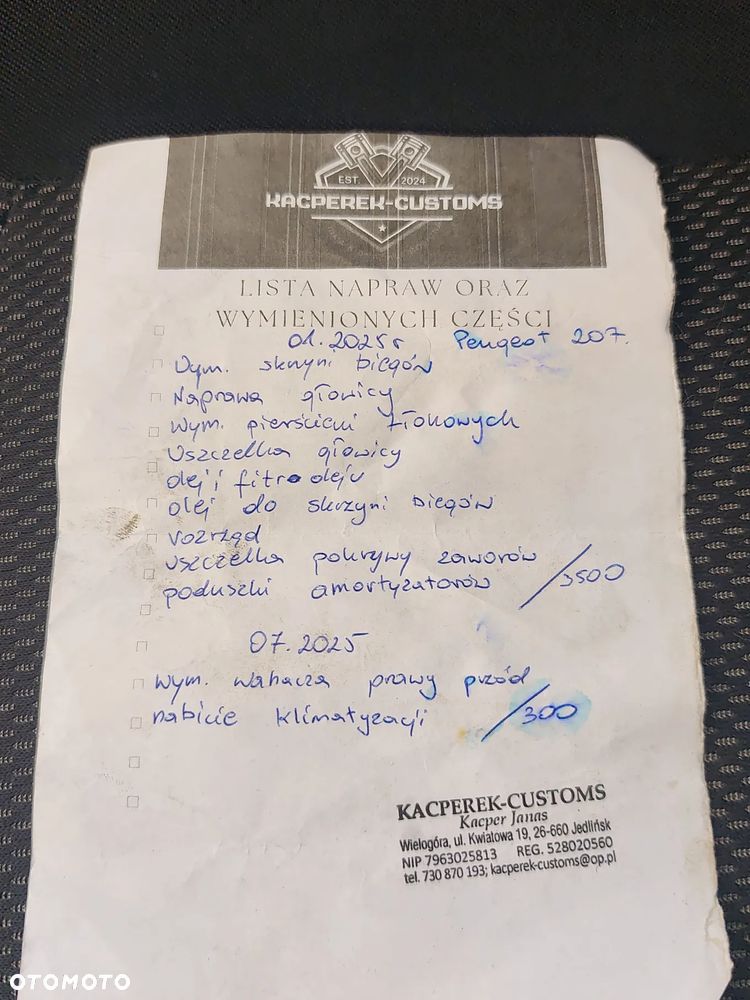 EST. 2024
KACPEREK-CUSTOMS
LISTA NAPRAW ORAZ
WYMIENIONYCH CZĘŚCI
01.2025r Peugeot 207.
Wym. skrzyni biegów
Naprawa głowicy
wym. pierścieni tłokowych
Uszczelka głowicy
olej i fitr oleju
olej do skrzyni biegów
rozrząd
uszczelka pokrywy zaworów
poduszki amortyzatorów /3500
07.2025
wym. wahacza prawy przód
nabicie klimatyzacji /300
KACPEREK-CUSTOMS
Kacper Janas
Wielogóra, ul. Kwiatowa 19, 26-660 Jedlińsk
NIP 7963025813 REG. 528020560
tel. 730 870 193; kacperek-customs@op.pl
OTOMOTO